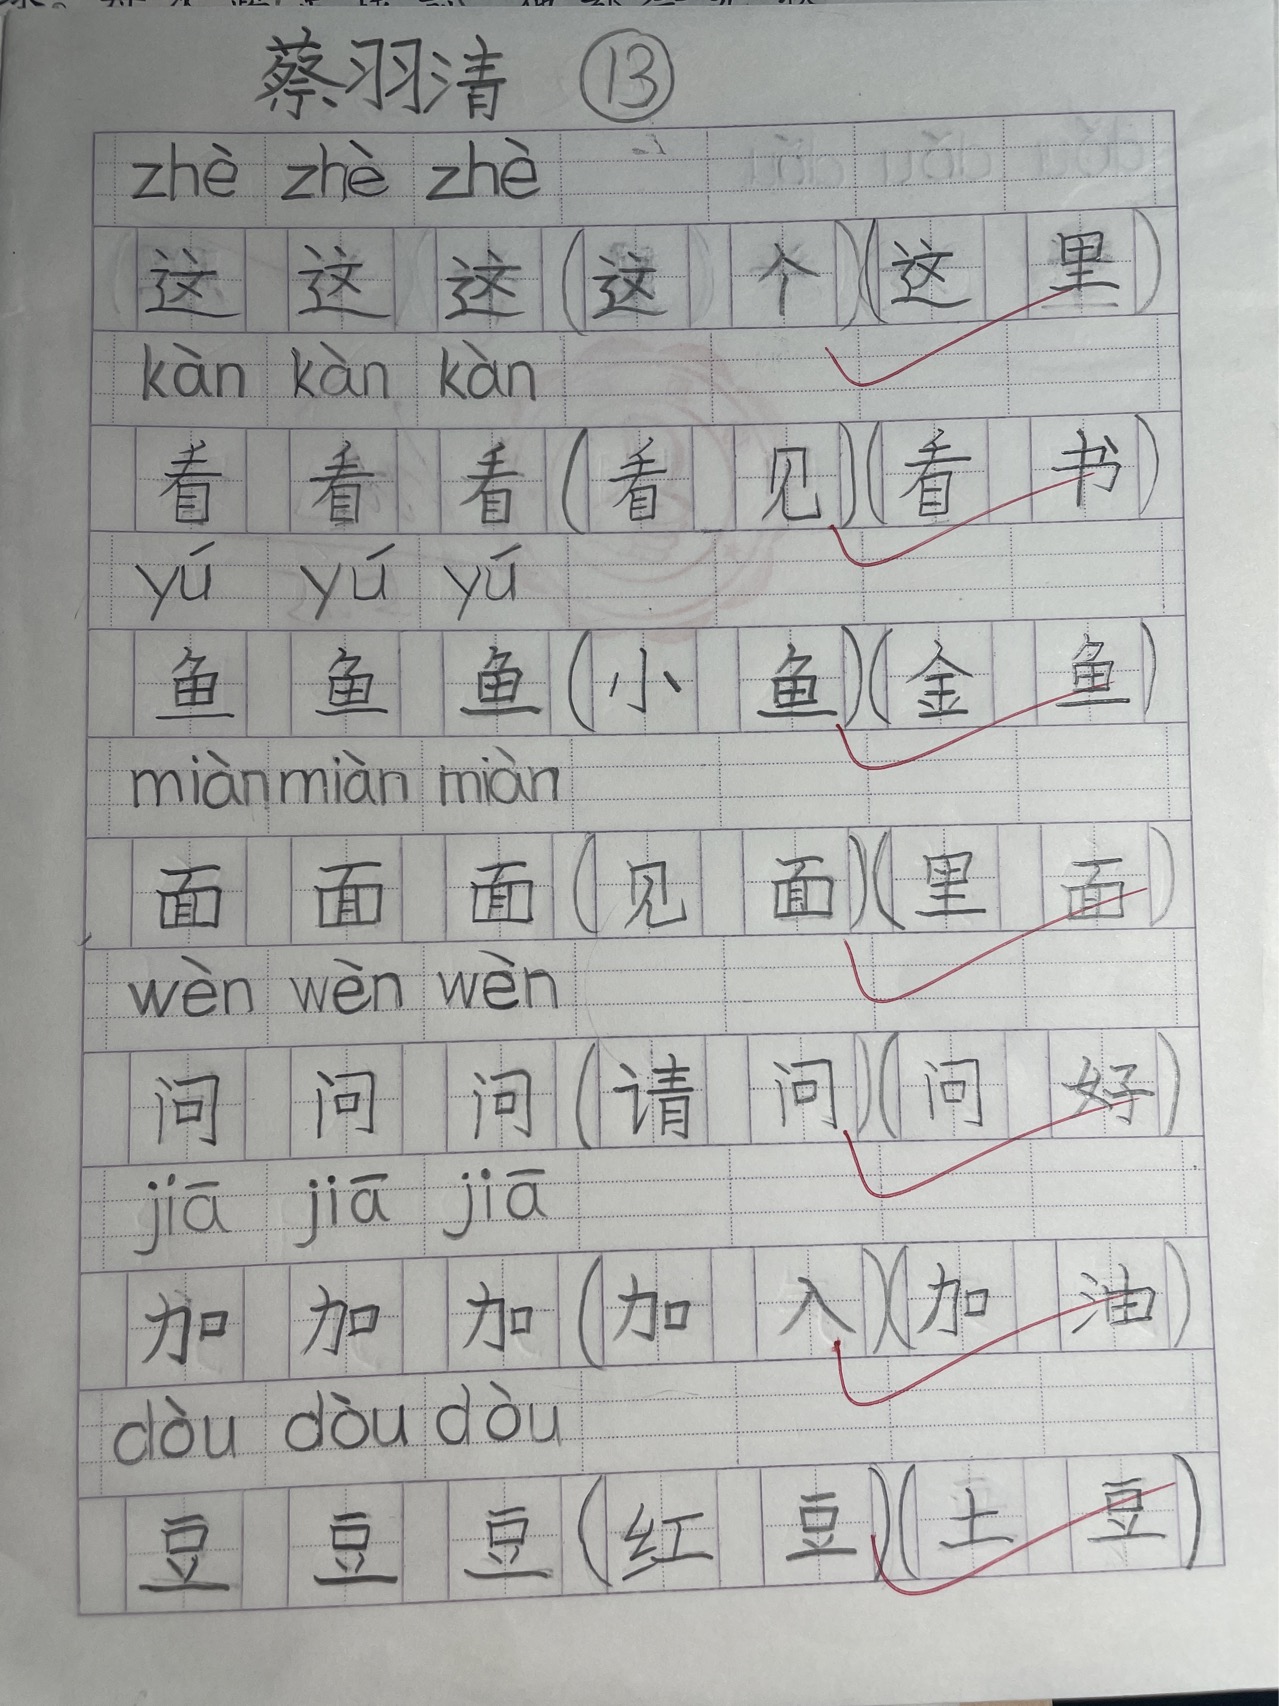 蔡羽清 13
zhè zhè zhè
这 这 这 (这 个)(这 里)
kàn kàn kàn
看 看 看 (看 见)(看 书)
yú yú yú
鱼 鱼 鱼 (小 鱼)(金 鱼)
miàn miàn miàn
面 面 面 (见 面)(里 面)
wèn wèn wèn
问 问 问 (请 问)(问 好)
jiā jiā jiā
加 加 加 (加 入)(加 油)
dòu dòu dòu
豆 豆 豆 (红 豆)(土 豆)